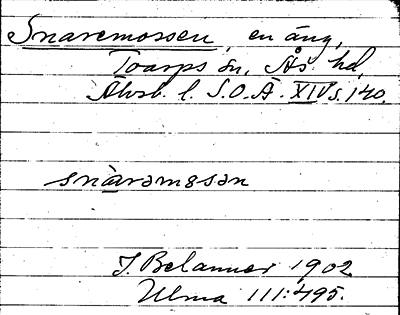 Snaremossen, en äng,
Toarps sn, Ås hd,
Älvsb. l. S.O.Ä. XIV s. 140.
snàramɛsən
J. Belanner 1902
Ulma 111:495.